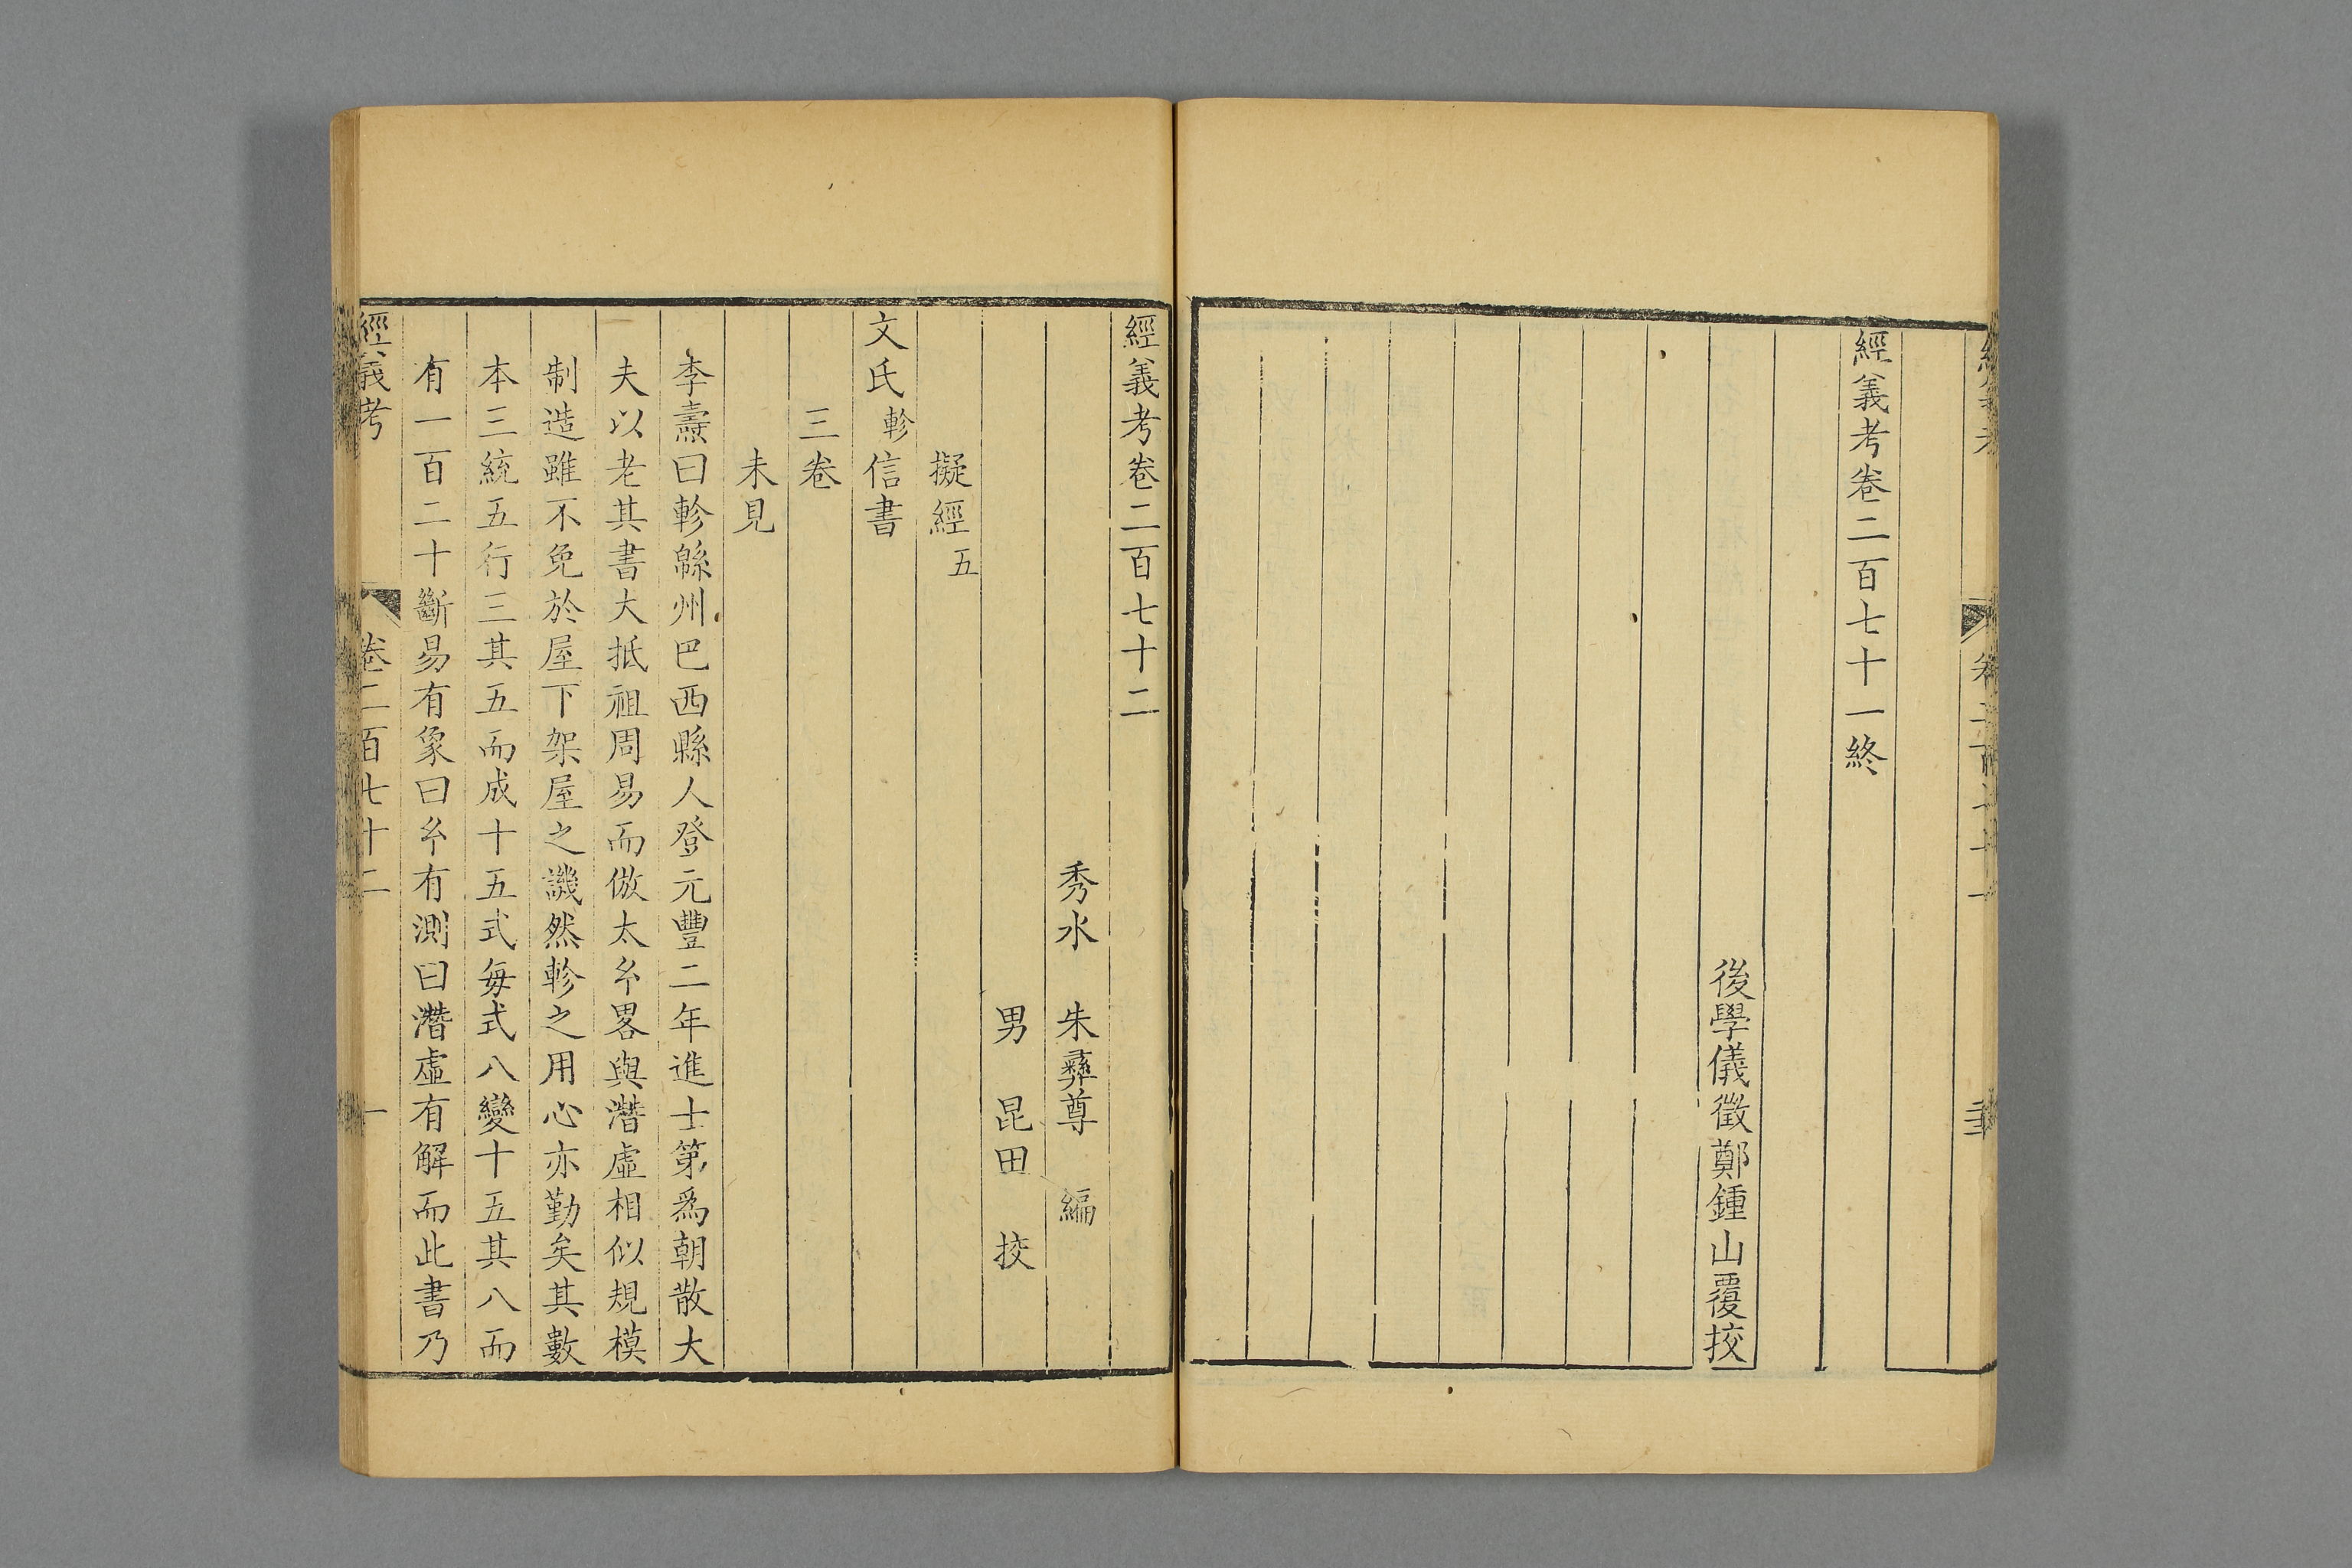 經義考卷二百七十一終
後學儀徵鄭鍾山覆挍
經義考卷二百七十二
秀水 朱彝尊 編
男 昆田 挍
擬經五
文氏軫信書
三卷
未見
李燾曰軫緜州巴西縣人登元豐二年進士第爲朝散大
夫以老其書大抵祖周易而倣太𤣥畧與潛虛相似規模
制造雖不免於屋下架屋之譏然軫之用心亦勤矣其數
本三統五行三其五而成十五式每式八變十五其八而
有一百二十斷易有象曰𤣥有測曰潛虛有解而此書乃
經義考 卷二百七十二 一